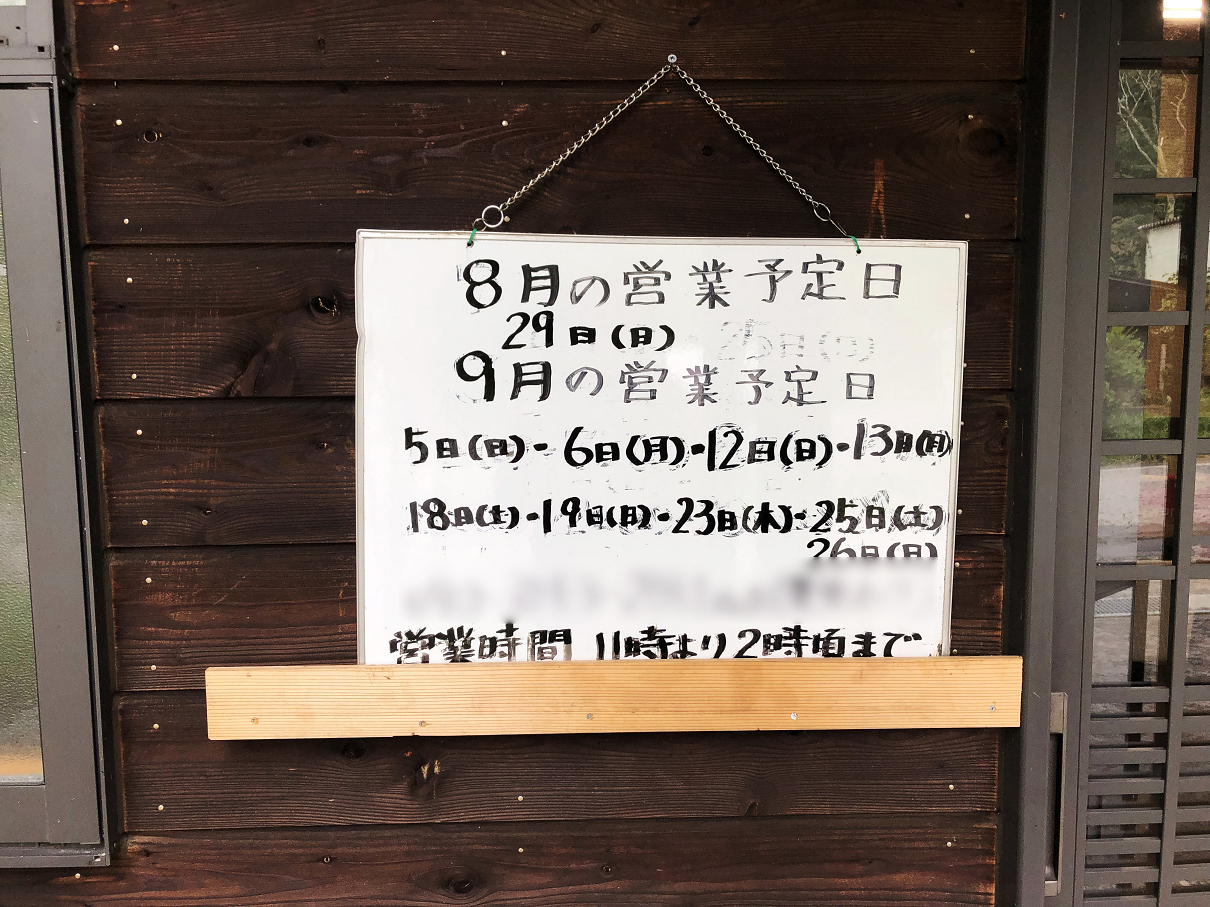 8月の営業予定日
29日(日)
9月の営業予定日
5日(日)・6日(月)・12日(日)・13日(月)
18日(土)・19日(日)・23日(木)・25日(土)
26日(日)
営業時間 11時より2時頃まで